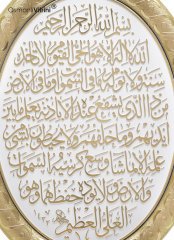 بسم الله الرحمن الرحيم
الله لا اله الا هو الحي القيوم لا تأخذه
سنة ولا نوم له ما في السموات وما في الارض
من ذا الذي يشفع عنده الا باذنه يعلم ما بين
ايديهم وما خلفهم ولا يحيطون بشئ من
علمه الا بما شاء وسع كرسيه السموات
والارض ولا يؤده حفظهما وهو
العلي العظيم